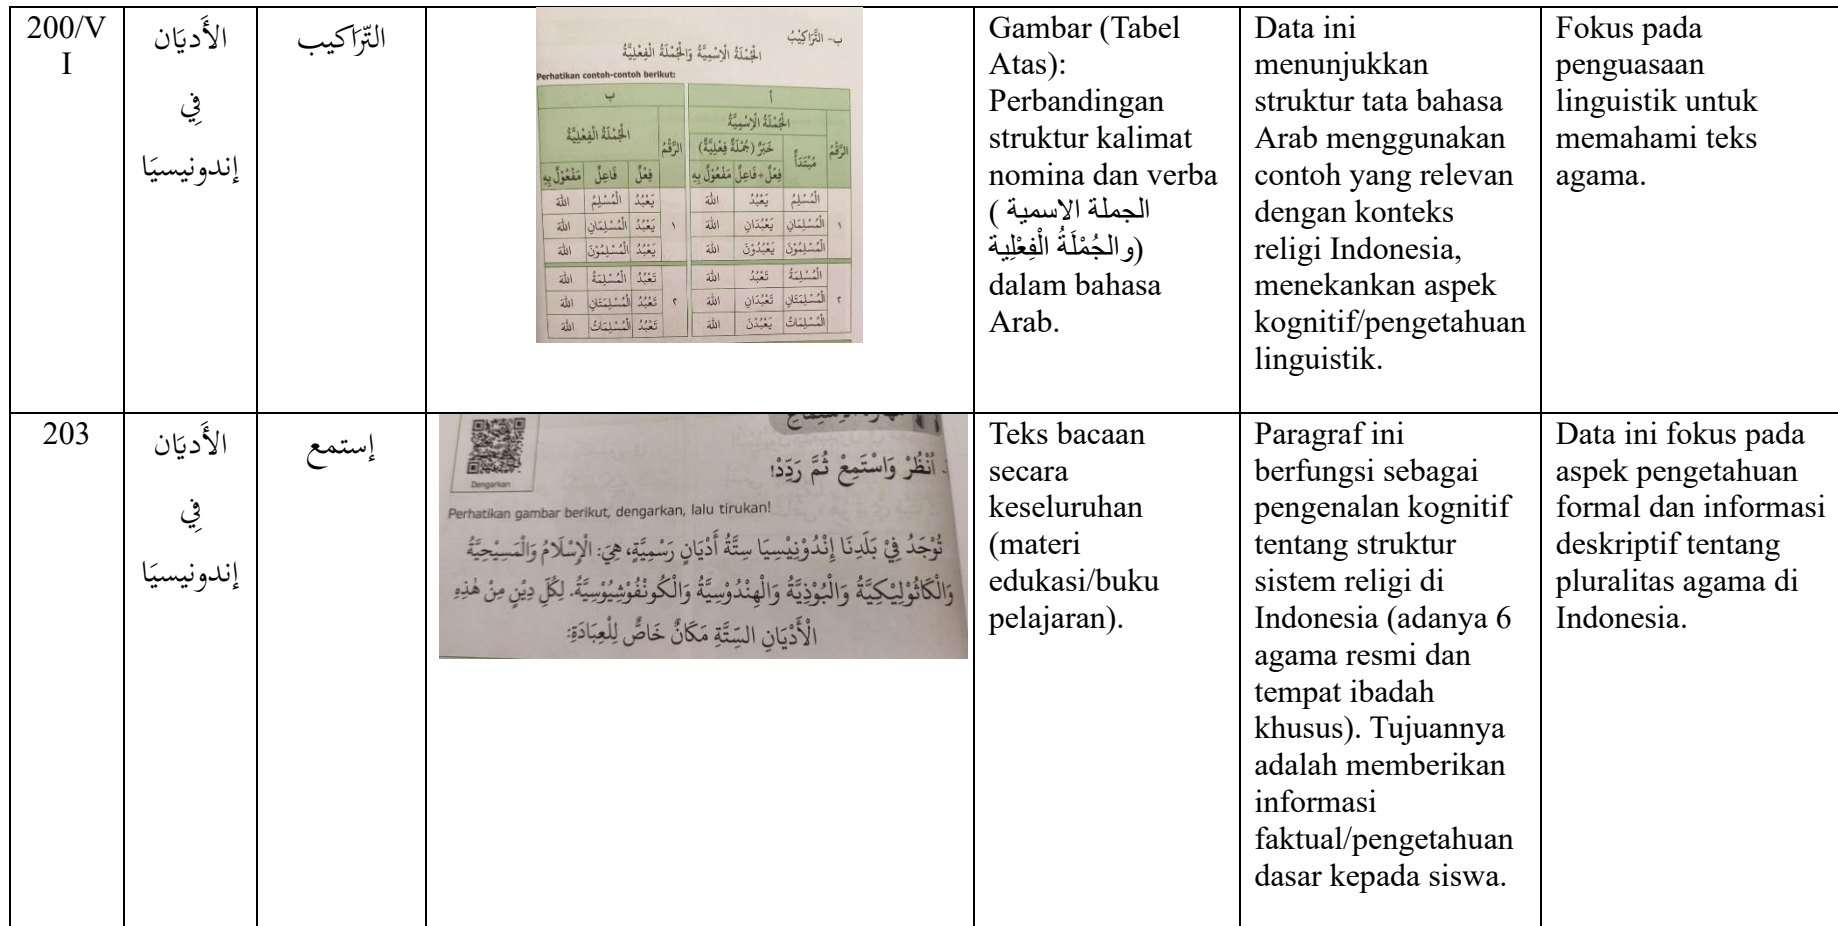 200/V
I
الأَديَان
فِي
إندونيسيَا
التّرَاكيب
ب- التَّرَاكِيْبُ
الْجُمْلَةُ الْاِسْمِيَّةُ وَالْجُمْلَةُ الْفِعْلِيَّةُ
Perhatikan contoh-contoh berikut:
أ ب
الْجُمْلَةُ الْاِسْمِيَّةُ
الرَّقْمُ مُبْتَدَأٌ خَبَرٌ (جُمْلَةٌ فِعْلِيَّةٌ) الرَّقْمُ الْجُمْلَةُ الْفِعْلِيَّةُ
فِعْلٌ+فَاعِلٌ مَفْعُوْلٌ بِهِ فِعْلٌ فَاعِلٌ مَفْعُوْلٌ بِهِ
الْمُسْلِمُ يَعْبُدُ اللهَ يَعْبُدُ الْمُسْلِمُ اللهَ
١ الْمُسْلِمَانِ يَعْبُدَانِ اللهَ ١ يَعْبُدُ الْمُسْلِمَانِ اللهَ
الْمُسْلِمُوْنَ يَعْبُدُوْنَ اللهَ يَعْبُدُ الْمُسْلِمُوْنَ اللهَ
الْمُسْلِمَةُ تَعْبُدُ اللهَ تَعْبُدُ الْمُسْلِمَةُ اللهَ
٢ الْمُسْلِمَتَانِ تَعْبُدَانِ اللهَ ٢ تَعْبُدُ الْمُسْلِمَتَانِ اللهَ
الْمُسْلِمَاتُ يَعْبُدْنَ اللهَ تَعْبُدُ الْمُسْلِمَاتُ اللهَ
Gambar (Tabel
Atas):
Perbandingan
struktur kalimat
nomina dan verba
( الجملة الاسمية
والجُمْلَةُ الْفِعْلِية)
dalam bahasa
Arab.
Data ini
menunjukkan
struktur tata bahasa
Arab menggunakan
contoh yang relevan
dengan konteks
religi Indonesia,
menekankan aspek
kognitif/pengetahuan
linguistik.
Fokus pada
penguasaan
linguistik untuk
memahami teks
agama.
203
الأَديَان
فِي
إندونيسيَا
إستمع
Dengarkan
اُنْظُرْ وَاسْتَمِعْ ثُمَّ رَدِّدْ!
Perhatikan gambar berikut, dengarkan, lalu tirukan!
تُوْجَدُ فِيْ بَلَدِنَا إِنْدُوْنِيْسِيَا سِتَّةُ أَدْيَانٍ رَسْمِيَّةٍ، هِيَ: الْإِسْلَامُ وَالْمَسِيْحِيَّةُ
وَالْكَاثُوْلِيْكِيَّةُ وَالْبُوْذِيَّةُ وَالْهِنْدُوْسِيَّةُ وَالْكُوْنْفُوْشِيُوْسِيَّةُ. لِكُلِّ دِيْنٍ مِنْ هٰذِهِ
الْأَدْيَانِ السِّتَّةِ مَكَانٌ خَاصٌّ لِلْعِبَادَةِ:
Teks bacaan
secara
keseluruhan
(materi
edukasi/buku
pelajaran).
Paragraf ini
berfungsi sebagai
pengenalan kognitif
tentang struktur
sistem religi di
Indonesia (adanya 6
agama resmi dan
tempat ibadah
khusus). Tujuannya
adalah memberikan
informasi
faktual/pengetahuan
dasar kepada siswa.
Data ini fokus pada
aspek pengetahuan
formal dan informasi
deskriptif tentang
pluralitas agama di
Indonesia.